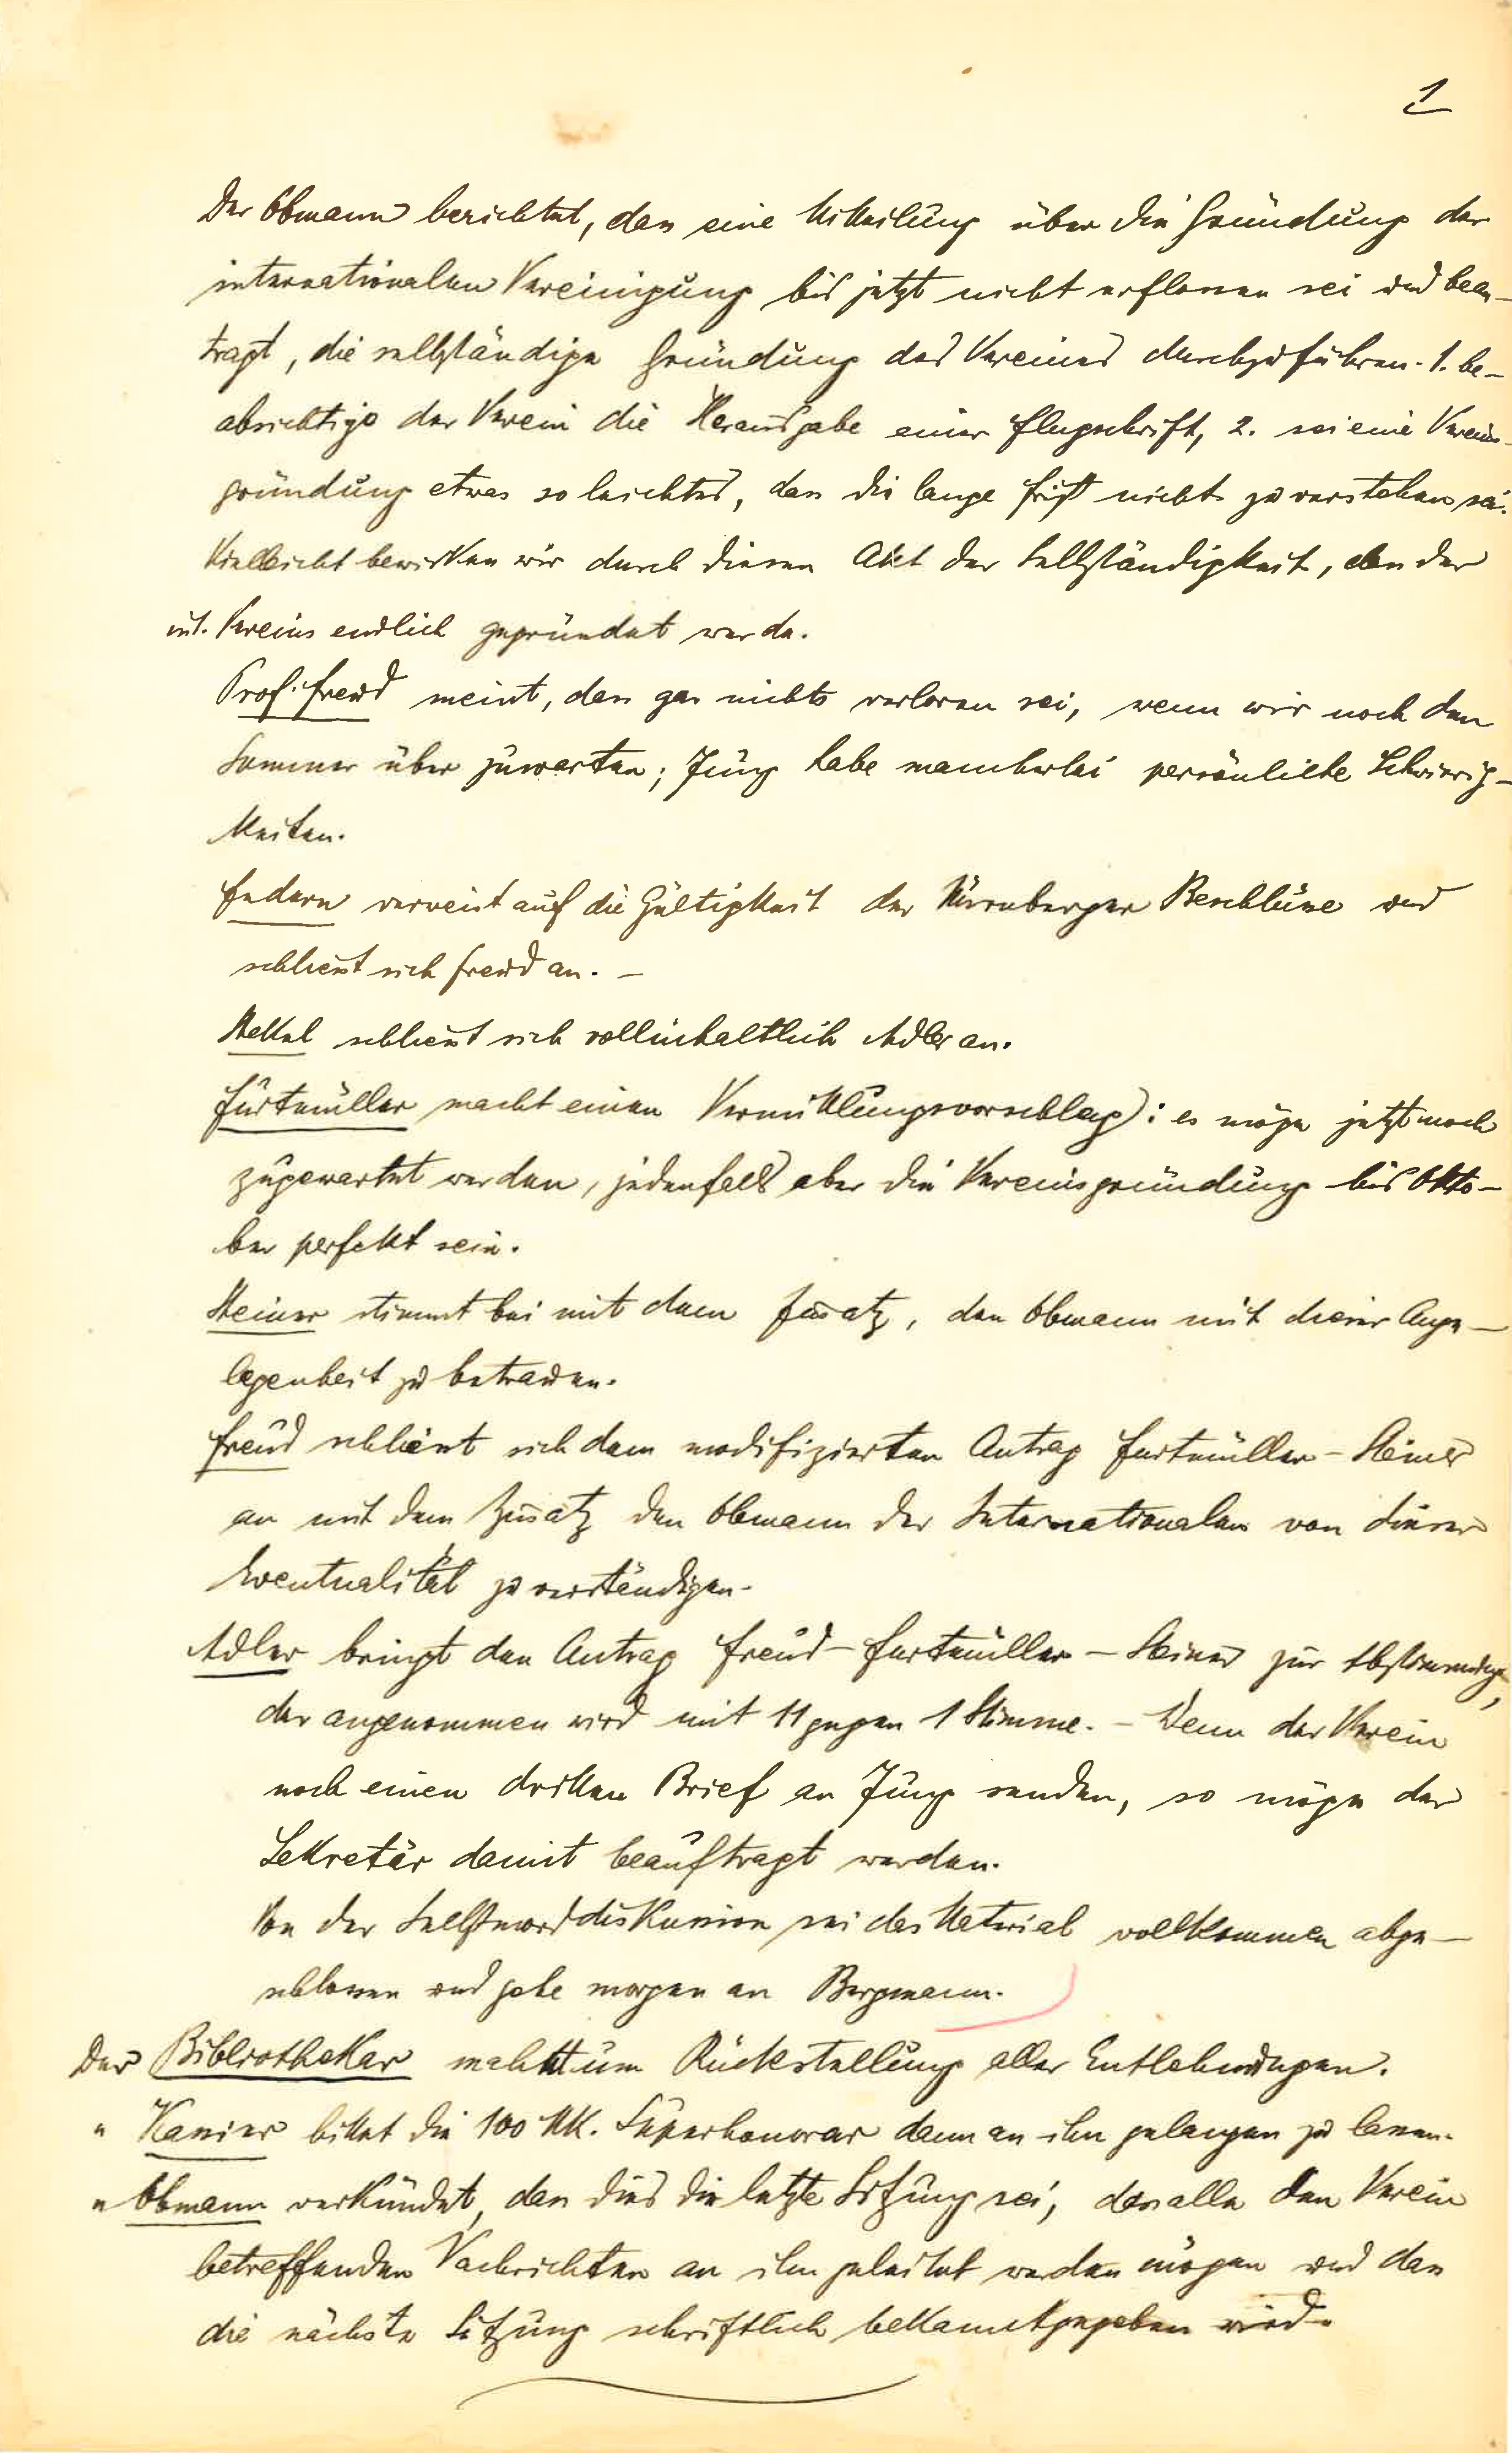 1
Der Obmann berichtet, dass eine Mitteilung über die Gründung der
internationalen Vereinigung bis jetzt nicht erflossen sei und bean-
tragt, die selbständige Gründung des Vereines durchzuführen. 1. be-
absichtige der Verein die Herausgabe einer Flugschrift, 2. sei eine Vereins-
gründung etwas so leichtes, dass die lange Frist nicht zu verstehen sei.
Vielleicht bewirken wir durch diesen Akt der Selbständigkeit, dass der
int. Verein endlich gegründet werde.
Prof. Freud meint, dass gar nichts verloren sei, wenn wir noch den
Sommer über zuwarten; Jung habe mancherlei persönliche Schwierig-
keiten.
Federn verweist auf die Gültigkeit der Nürnberger Beschlüsse und
schliesst sich Freud an. –
Stekel schliesst sich vollinhaltlich Adler an.
Furtmüller macht einen Vermittlungsvorschlag: es möge jetzt noch
zugewartet werden, jedenfalls aber die Vereinsgründung bis Okto-
ber perfekt sein.
Steiner stimmt bei mit dem Zusatz, den Obmann mit dieser Ange-
legenheit zu betrauen.
Freud schliesst sich dem modifizierten Antrag Furtmüller – Steiner
an mit dem Zusatz den Obmann der Internationalen von dieser
Eventualität zu verständigen.
Adler bringt den Antrag Freud – Furtmüller – Steiner zur Abstimmung,
der angenommen wird mit 11 gegen 1 Stimme. – Wenn der Verein
noch einen dritten Brief an Jung senden, so möge der
Sekretär damit beauftragt werden.
Von der Selbstmorddiskussion sei das Material vollkommen abge-
schlossen und gehe morgen an Bergmann.
Der Bibliothekar mahnt um Rückstellung aller Entlehnungen.
" Kassier bittet die 100 MK. Superhonorar dann an ihn gelangen zu lassen.
" Obmann verkündet, dass dies die letzte Sitzung sei, dass alle den Verein
betreffenden Nachrichten an ihn geleitet werden mögen und dass
die nächste Sitzung schriftlich bekanntgegeben wird.